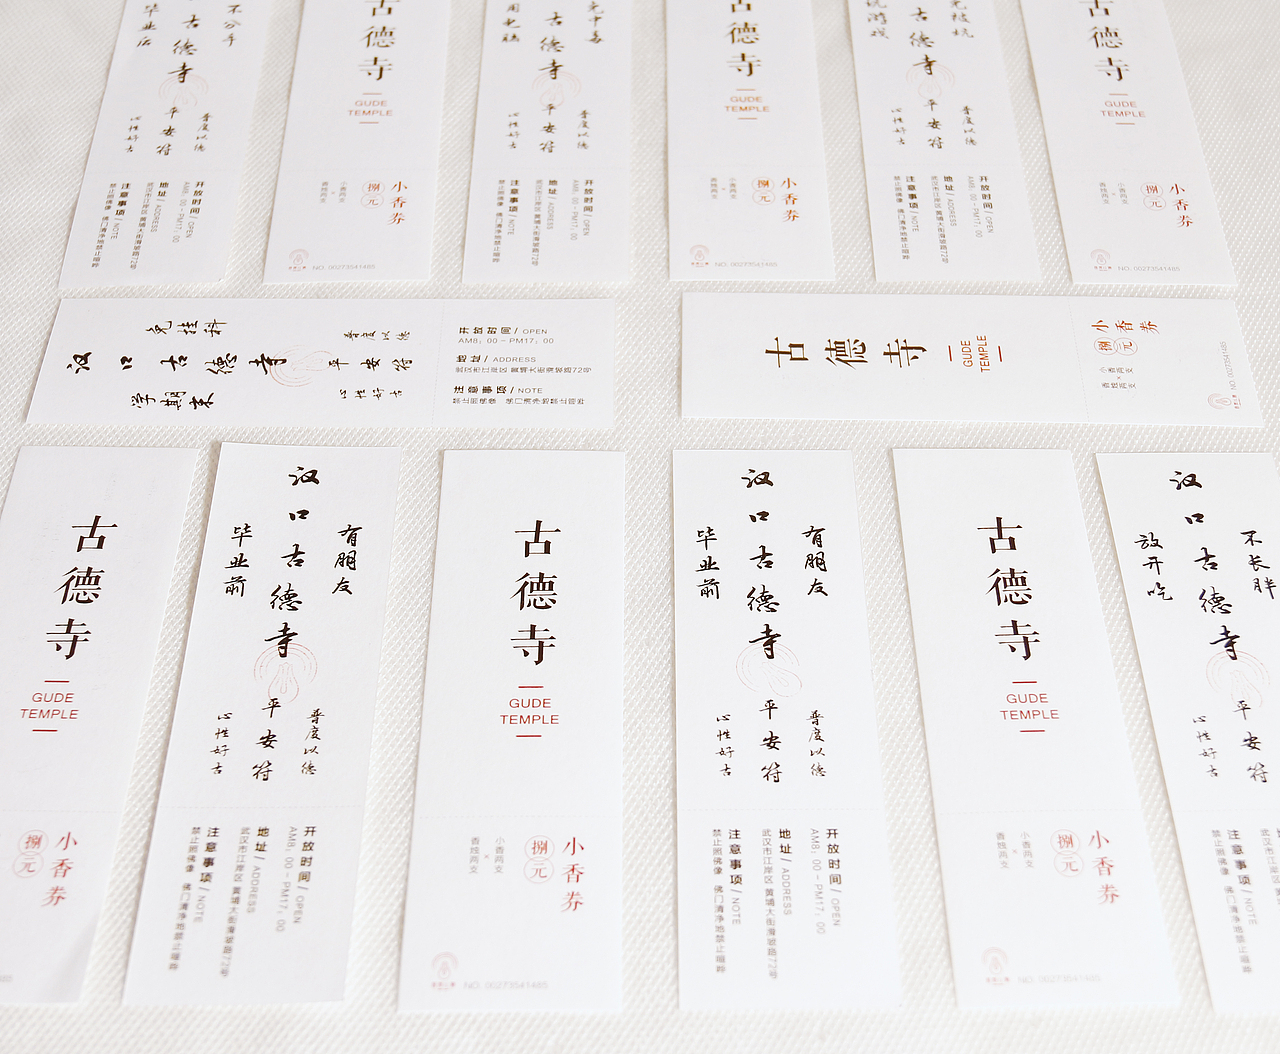 毕业后
不分手
古德寺
平安符
心性好古
普度以德
开放时间 / OPEN
AM8：00－PM17：00
地址 / ADDRESS
武汉市江岸区黄埔大街滑坡路72号
注意事项 / NOTE
禁止照佛像 佛门清净地禁止喧哗
古德寺
GUDE
TEMPLE
小香券
捌元
小香两支
×
香烛两支
NO. 00273541485
用电脑
古德寺
平安符
心性好古
普度以德
开放时间 / OPEN
AM8：00－PM17：00
地址 / ADDRESS
武汉市江岸区黄埔大街滑坡路72号
注意事项 / NOTE
禁止照佛像 佛门清净地禁止喧哗
古德寺
GUDE
TEMPLE
小香券
捌元
小香两支
×
香烛两支
NO. 00273541485
玩游戏
古德寺
平安符
心性好古
普度以德
开放时间 / OPEN
AM8：00－PM17：00
地址 / ADDRESS
武汉市江岸区黄埔大街滑坡路72号
注意事项 / NOTE
禁止照佛像 佛门清净地禁止喧哗
古德寺
GUDE
TEMPLE
小香券
捌元
小香两支
×
香烛两支
NO. 00273541485
免挂科
汉口古德寺
学期末
平安符
普度以德
心性好古
开放时间 / OPEN
AM8：00－PM17：00
地址 / ADDRESS
武汉市江岸区黄埔大街滑坡路72号
注意事项 / NOTE
禁止照佛像 佛门清净地禁止喧哗
古德寺
GUDE
TEMPLE
小香券
捌元
小香两支
×
香烛两支
NO. 00273541485
古德寺
GUDE
TEMPLE
小香券
捌元
汉口古德寺
有朋友
毕业前
平安符
普度以德
心性好古
开放时间 / OPEN
AM8：00－PM17：00
地址 / ADDRESS
武汉市江岸区黄埔大街滑坡路72号
注意事项 / NOTE
禁止照佛像 佛门清净地禁止喧哗
古德寺
GUDE
TEMPLE
小香券
捌元
小香两支
×
香烛两支
NO. 00273541485
汉口古德寺
有朋友
毕业前
平安符
普度以德
心性好古
开放时间 / OPEN
AM8：00－PM17：00
地址 / ADDRESS
武汉市江岸区黄埔大街滑坡路72号
注意事项 / NOTE
禁止照佛像 佛门清净地禁止喧哗
古德寺
GUDE
TEMPLE
小香券
捌元
小香两支
×
香烛两支
NO. 00273541485
汉口古德寺
不长胖
放开吃
平安符
普度以德
心性好古
地址 / ADDRESS
武汉市江岸区黄埔大街滑坡路72号
注意事项 / NOTE
禁止照佛像 佛门清净地禁止喧哗